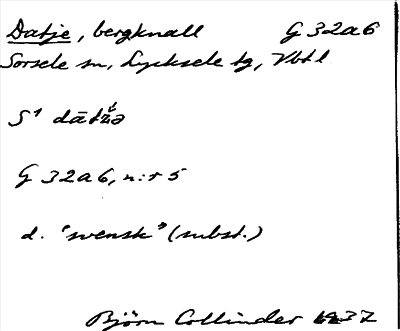 Datje, bergknall G 32a6
Sorsele sn, Lycksele tg, Vbtl
S¹ dātžə
G 32a6, n:r 5
d. "svensk" (subst.)
Björn Collinder 1937